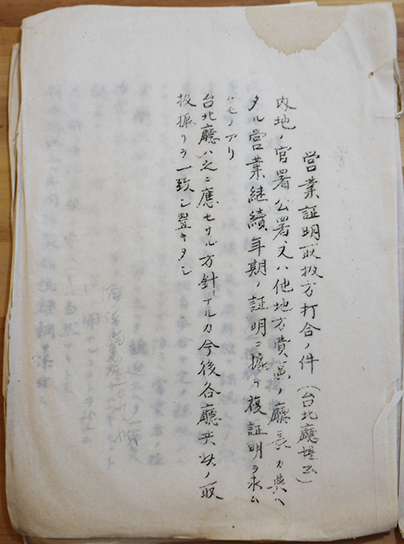 営業証明取扱方打合ノ件（台北廳提出）
内地ノ官署公署又ハ他地方費區ノ廳長カ與ヘ
タル営業継續年期ノ証明ニ據リ複証明ヲ求ム
ルモノアリ
台北廳ハ之ニ應セサル方針ナルカ今後各廳共此ノ取
扱振リヲ一致シ置キタシ